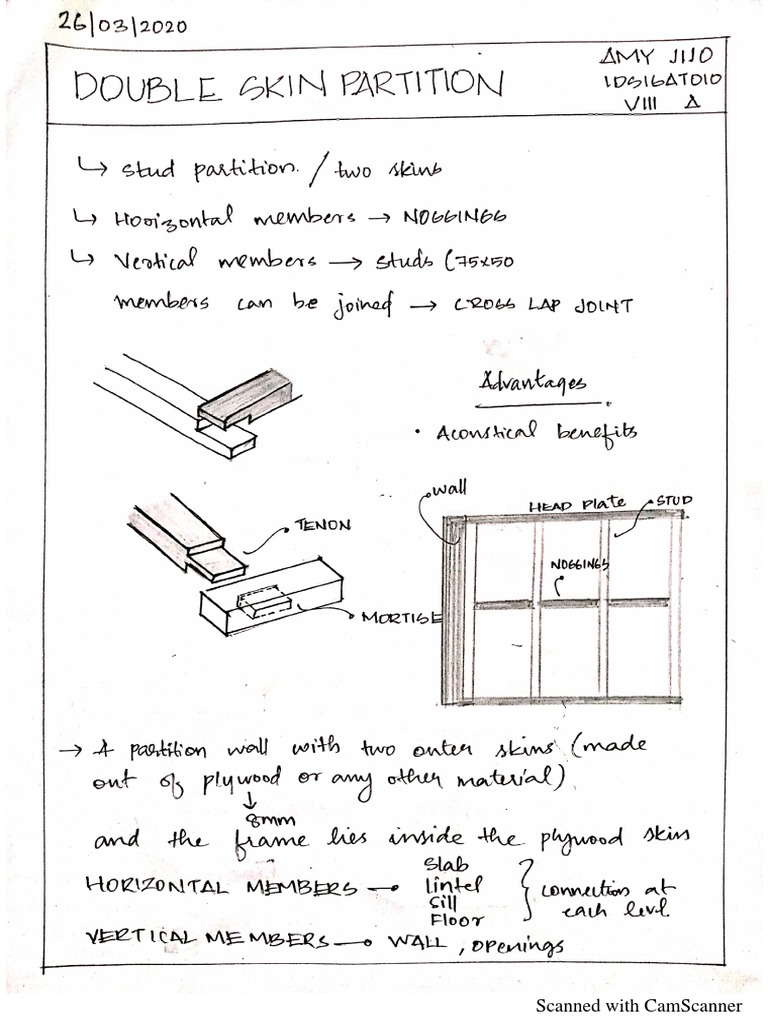 26/03/2020
DOUBLE SKIN PARTITION
AMY JIJO
1DS16AT010
VIII A
↳ stud partition. / two skins
↳ Horizontal members → NOGGINGS
↳ Vertical members → studs (75x50
members can be joined → CROSS LAP JOINT
Advantages
• Acoustical benefits
wall
HEAD Plate
STUD
NOGGINGS
TENON
MORTISE
→ A partition wall with two outer skins (made
out of plywood or any other material)
↓
8mm
and the frame lies inside the plywood skin
HORIZONTAL MEMBERS → Slab
lintel
sill
Floor
} connections at
each level
VERTICAL MEMBERS → WALL, openings
Scanned with CamScanner